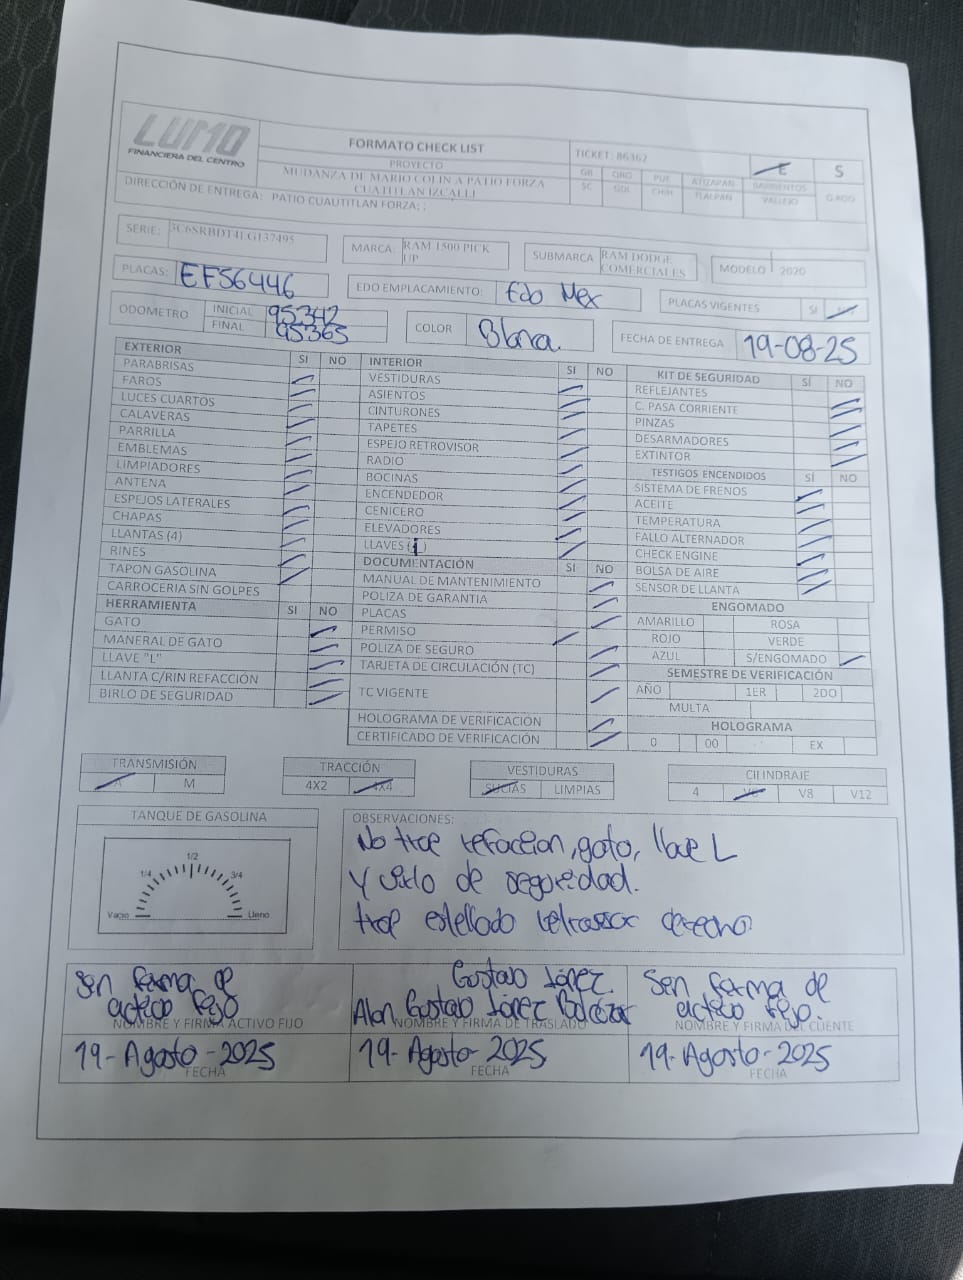 LUMO
FINANCIERA DEL CENTRO
FORMATO CHECK LIST
PROYECTO
MUDANZA DE MARIO COLIN A PATIO FORZA
CUATITLAN IZCALLI
TICKET: 86362
E S
GB QRO PUE ATIZAPAN BARRIENTOS
SC GDL CHIH TLALPAN VALLEJO
DIRECCIÓN DE ENTREGA: PATIO CUAUTITLAN FORZA; ;
SERIE: 3C6SRBDT4LG137495
MARCA: RAM 1500 PICK UP
SUBMARCA RAM DODGE COMERCIALES
MODELO 2020
PLACAS: EF56446
EDO EMPLACAMIENTO: Edo Mex
PLACAS VIGENTES SI
ODOMETRO INICIAL 95342
FINAL 95365
COLOR Blnca.
FECHA DE ENTREGA 19-08-25
EXTERIOR SI NO
PARABRISAS
FAROS
LUCES CUARTOS
CALAVERAS
PARRILLA
EMBLEMAS
LIMPIADORES
ANTENA
ESPEJOS LATERALES
CHAPAS
LLANTAS (4)
RINES
TAPON GASOLINA
CARROCERIA SIN GOLPES
HERRAMIENTA SI NO
GATO
MANERAL DE GATO
LLAVE "L"
LLANTA C/RIN REFACCIÓN
BIRLO DE SEGURIDAD
INTERIOR SI NO
VESTIDURAS
ASIENTOS
CINTURONES
TAPETES
ESPEJO RETROVISOR
RADIO
BOCINAS
ENCENDEDOR
CENICERO
ELEVADORES
LLAVES (1)
DOCUMENTACIÓN SI NO
MANUAL DE MANTENIMIENTO
POLIZA DE GARANTIA
PLACAS
PERMISO
POLIZA DE SEGURO
TARJETA DE CIRCULACIÓN (TC)
TC VIGENTE
HOLOGRAMA DE VERIFICACIÓN
CERTIFICADO DE VERIFICACIÓN
KIT DE SEGURIDAD SÍ NO
REFLEJANTES
C. PASA CORRIENTE
PINZAS
DESARMADORES
EXTINTOR
TESTIGOS ENCENDIDOS SÍ NO
SISTEMA DE FRENOS
ACEITE
TEMPERATURA
FALLO ALTERNADOR
CHECK ENGINE
BOLSA DE AIRE
SENSOR DE LLANTA
ENGOMADO
AMARILLO ROSA
ROJO VERDE
AZUL S/ENGOMADO
SEMESTRE DE VERIFICACIÓN
AÑO 1ER 2DO
MULTA
HOLOGRAMA
0 00 EX
TRANSMISIÓN
A M
TRACCIÓN
4X2 4X4
VESTIDURAS
SUCIAS LIMPIAS
CILINDRAJE
4 V8 V12
TANQUE DE GASOLINA
1/4 1/2 3/4
Vacio Lleno
OBSERVACIONES:
No trae refaccion, gato, llave L
Y virlo de seguridad.
trae estellado retrasor derecho.
Sen forma de
acteco Fejo
NOMBRE Y FIRMA ACTIVO FIJO
19-Agosto-2025
FECHA
Gustavo
Alan Gustavo
NOMBRE Y FIRMA DE TRASLADO
19-Agosto-2025
FECHA
Sen forma de
acteco Fejo.
NOMBRE Y FIRMA DEL CLIENTE
19-Agosto-2025
FECHA